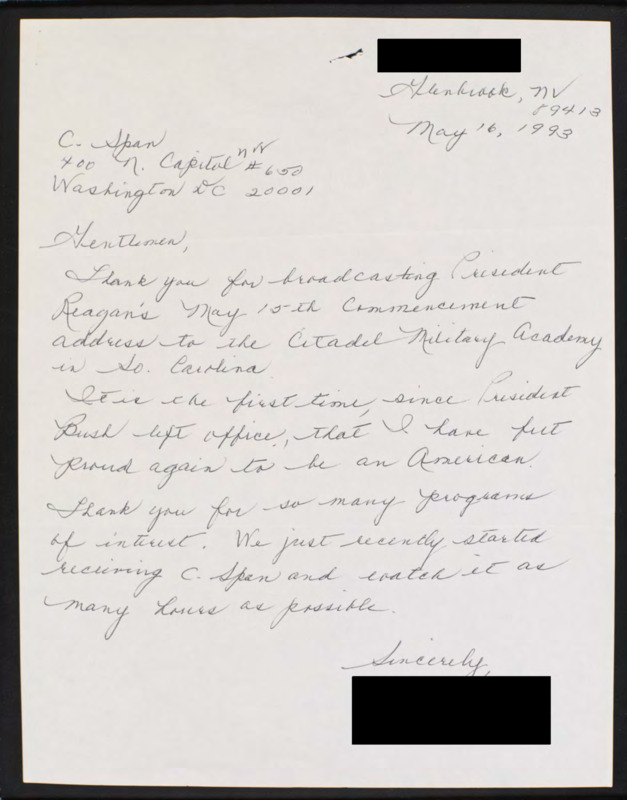 Glenbrook, NV
89413
May 16, 1993
C. Span
400 N. Capitol NW #650
Washington DC 20001
Gentlemen,
Thank you for broadcasting President
Reagan's May 15th Commencement
address to the Citadel Military Academy
in So. Carolina
It is the first time, since President
Bush left office, that I have felt
proud again to be an American.
Thank you for so many programs
of interest. We just recently started
receiving C. Span and watch it as
many hours as possible.
Sincerely,